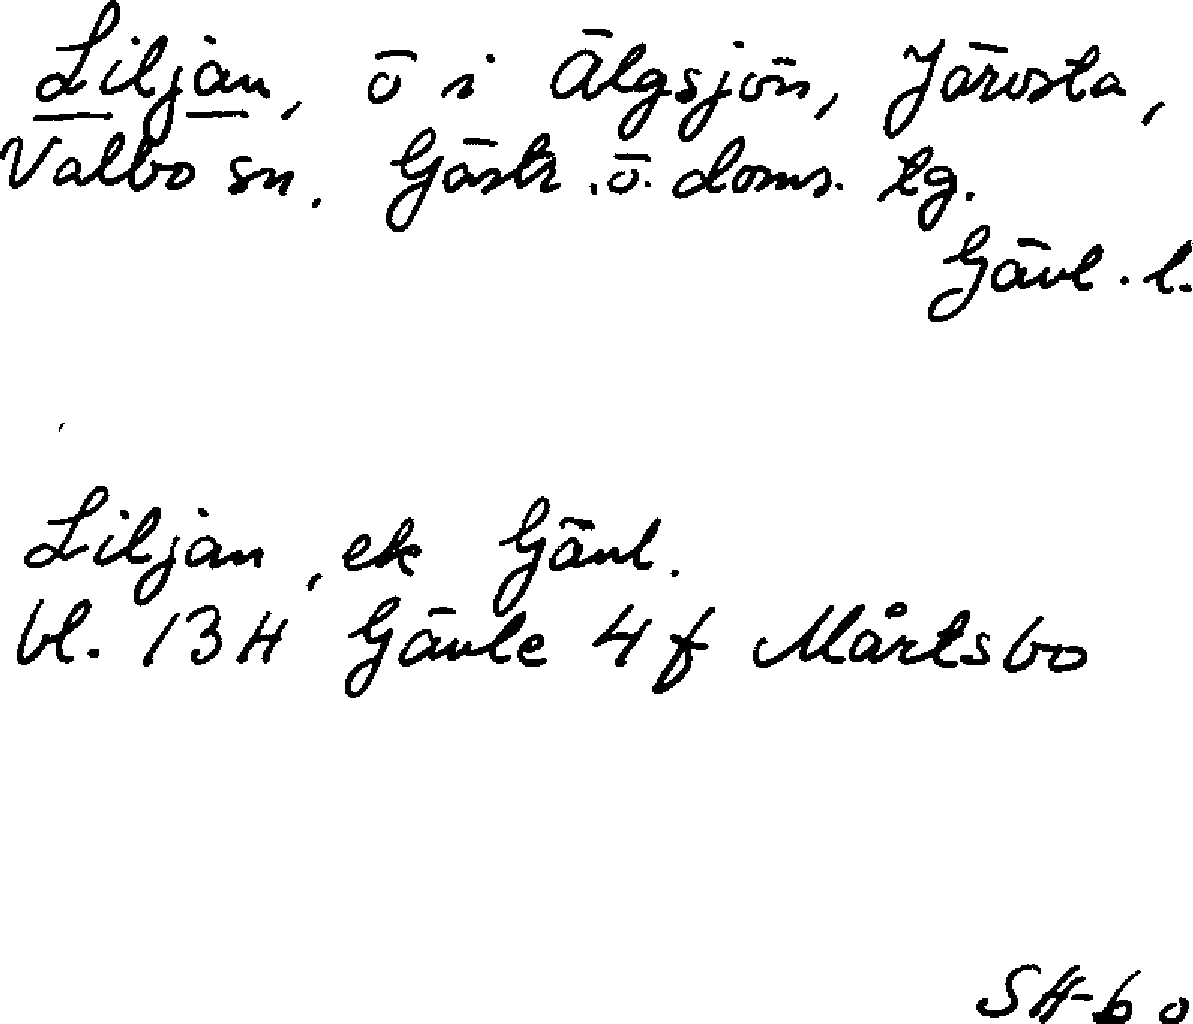 Liljan, ö i Älgsjön, Järvsta,
Valbo sn. Gästr. ö. doms. tg.
Gävl. l.
Liljan, ek Gävl.
bl. 13 H Gävle 4 f Mårtsbo
SH-bo